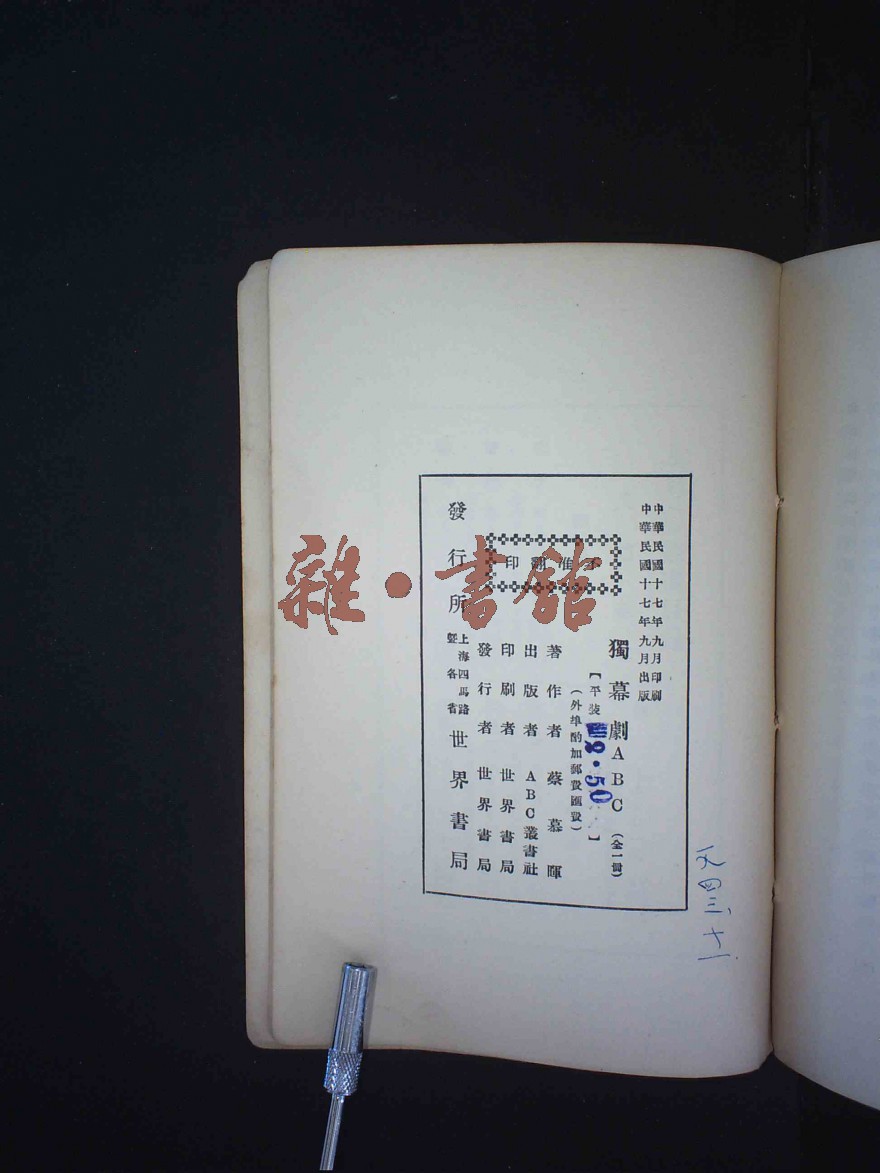 中華民國十七年九月印刷
中華民國十七年九月出版
獨幕劇ABC(全一冊)
【平裝 】
8.50
(外埠酌加郵費匯費)
不准翻印
著作者 蔡慕暉
出版者 ABC叢書社
印刷者 世界書局
發行者 世界書局
發行所 上海四馬路暨各省 世界書局
雜·書館